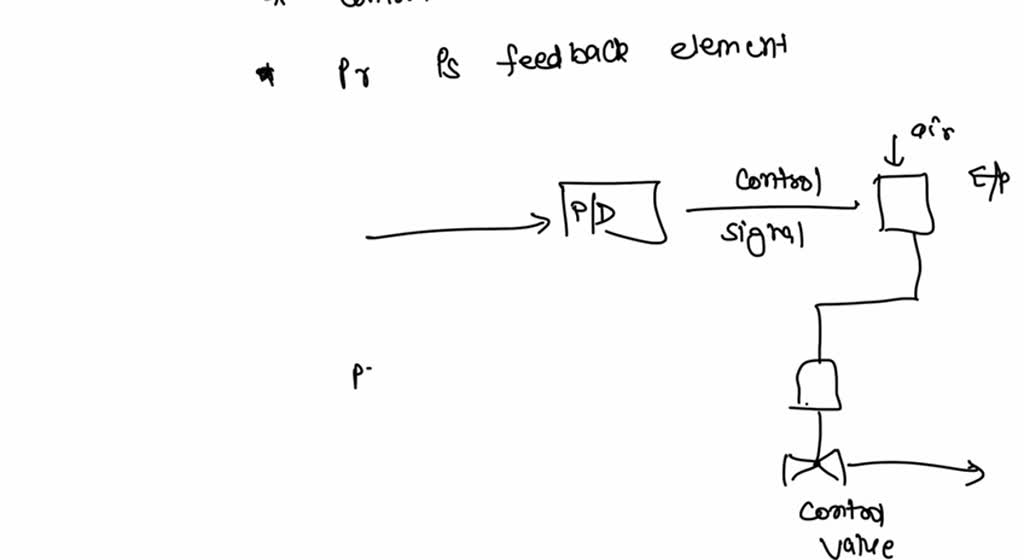 * Pr Ps feedback element
air
E/P
P/D
control
signal
P-
control
valve